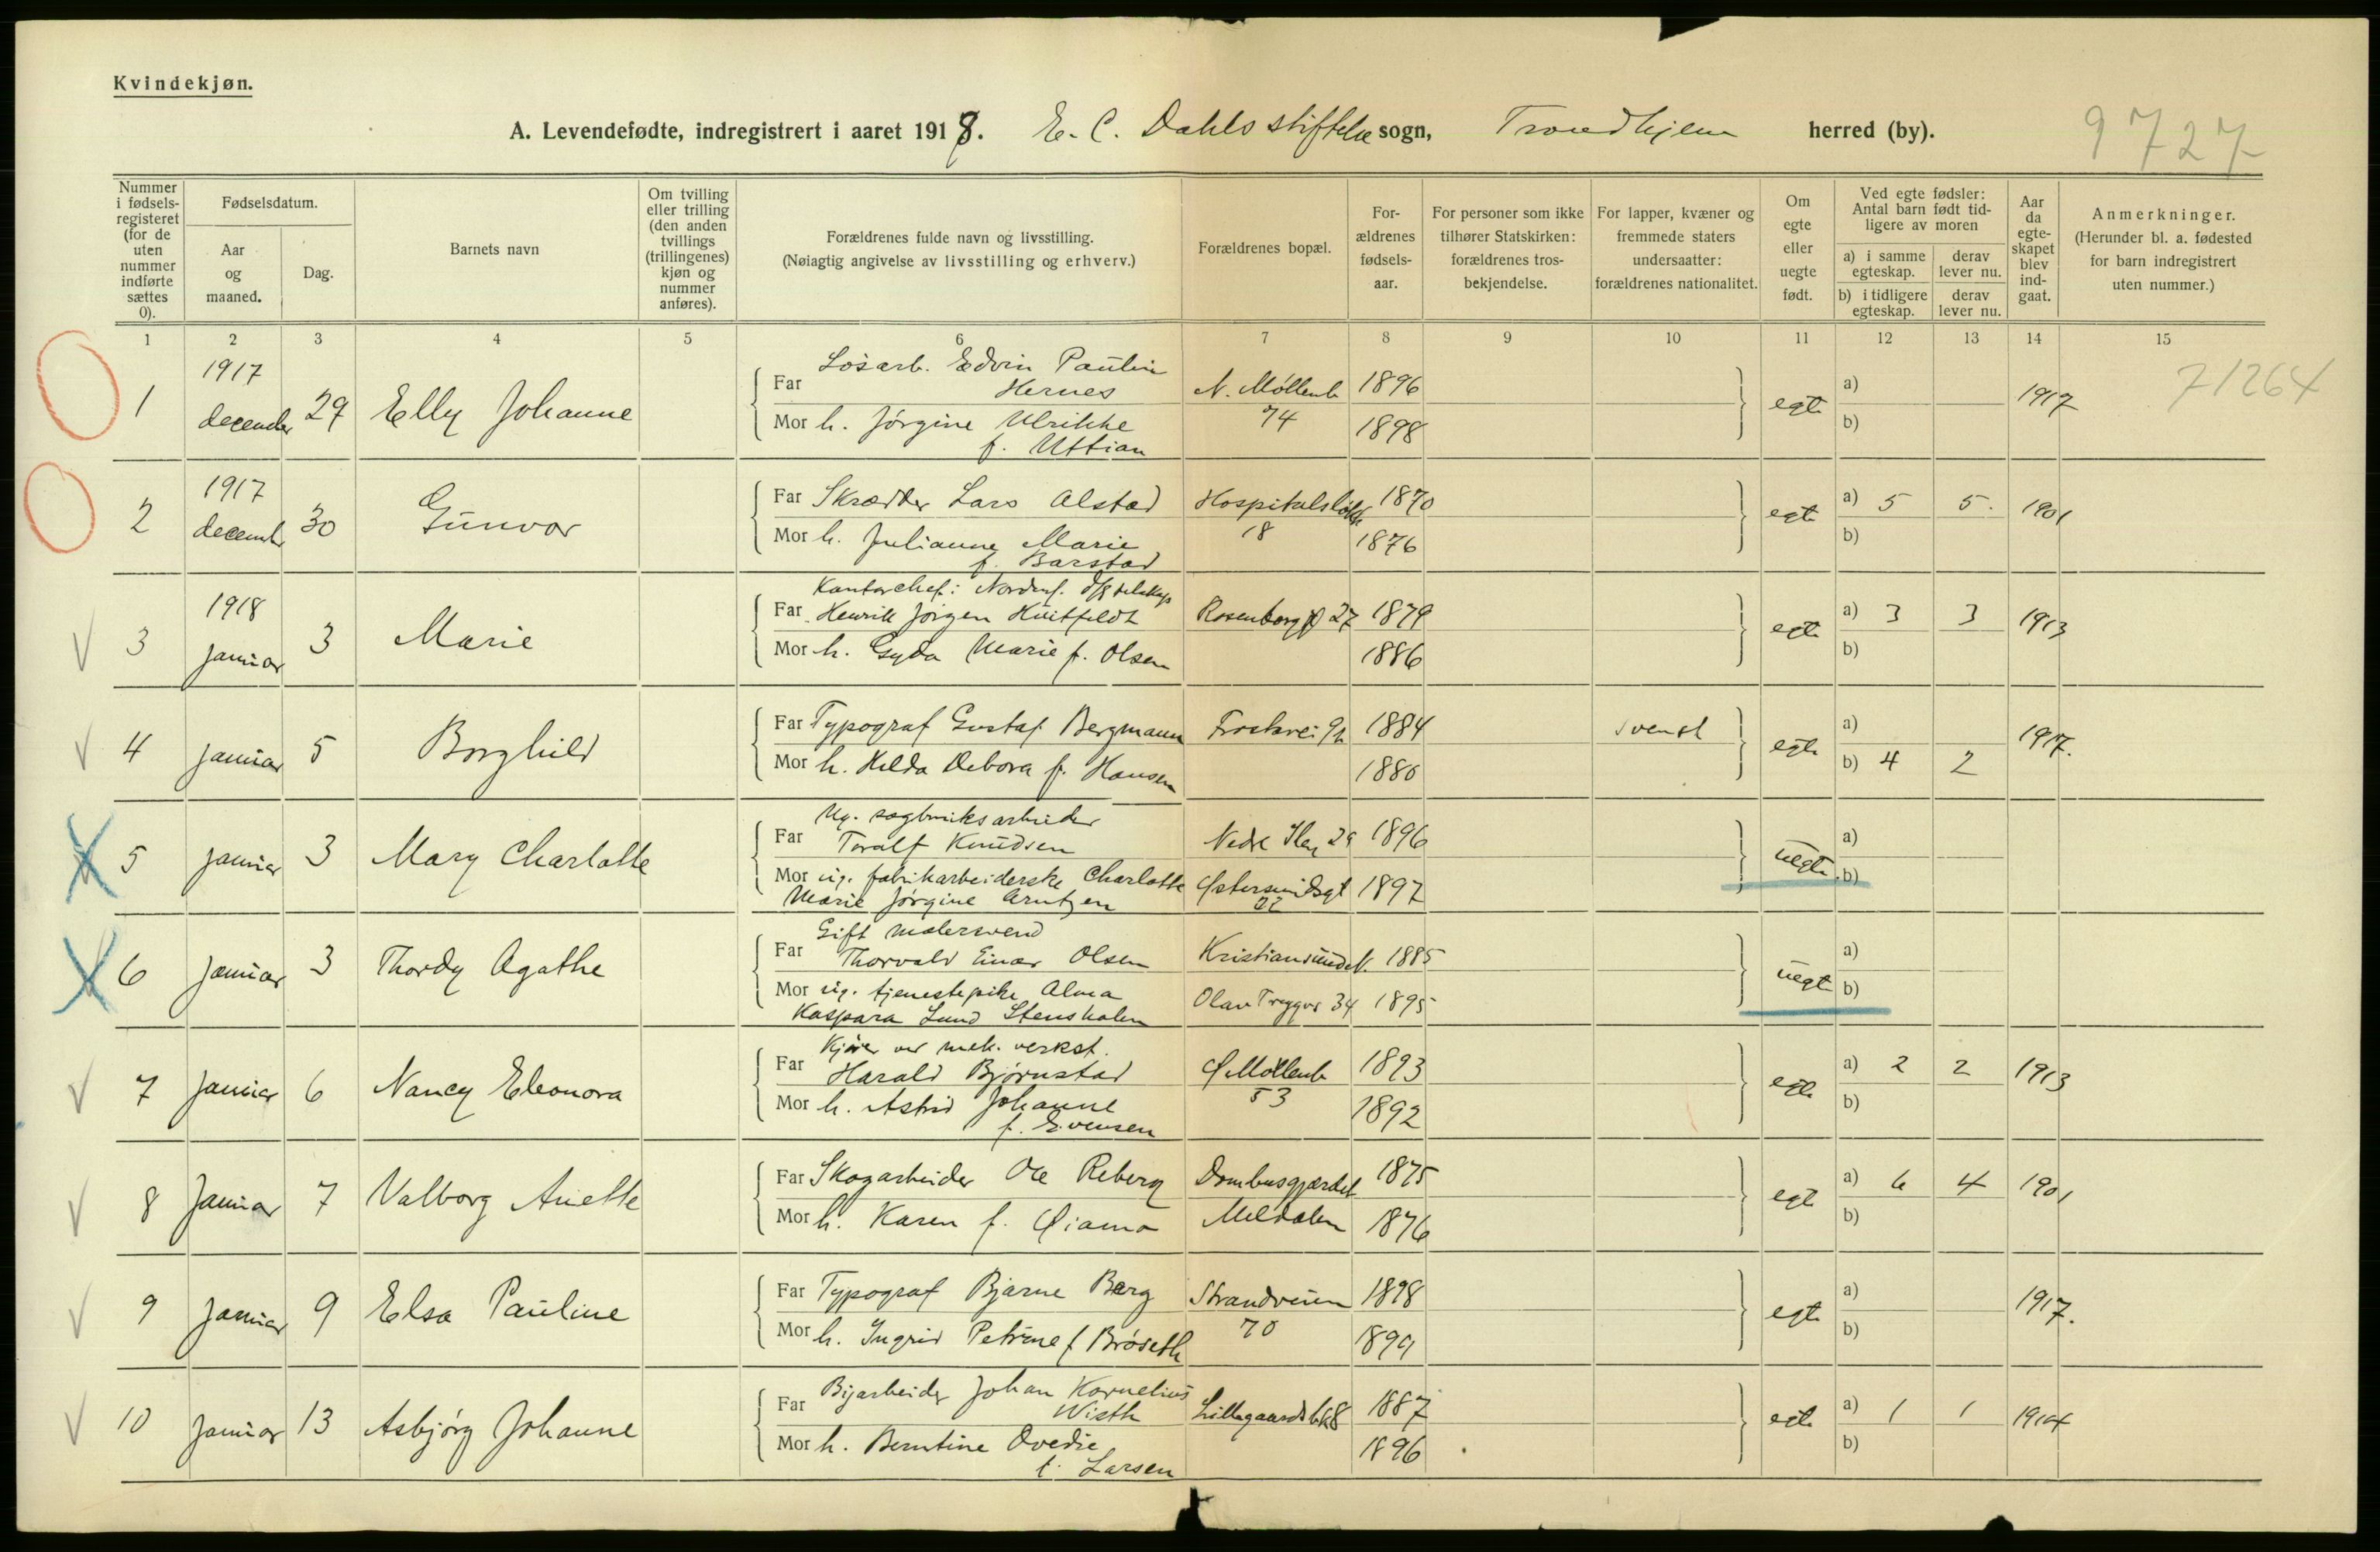 Kvindekjøn.
A. Levendefødte, indregistrert i aaret 1918. E. C. Dahls stiftelse sogn, Trondhjem herred (by).
9727
Nummer i fødselsregisteret (for de uten nummer indførte sættes 0).
Fødselsdatum.
Aar og maaned.
Dag.
Barnets navn
Om tvilling eller trilling (den anden tvillings (trillingenes) kjøn og nummer anføres).
Forældrenes fulde navn og livsstilling.
(Nøiagtig angivelse av livsstilling og erhverv.)
Forældrenes bopæl.
Forældrenes fødselsaar.
For personer som ikke tilhører Statskirken: forældrenes trosbekjendelse.
For lapper, kvæner og fremmede staters undersaatter: forældrenes nationalitet.
Om egte eller uegte født.
Ved egte fødsler: Antal barn født tidligere av moren
a) i samme egteskap.
derav lever nu.
b) i tidligere egteskap.
derav lever nu.
Aar da egteskapet blev indgaat.
Anmerkninger.
(Herunder bl. a. fødested for barn indregistrert uten nummer.)
1 2 3 4 5 6 7 8 9 10 11 12 13 14 15
71264
1 1917 december 29 Elly Johanne
Far Løsarb. Edvin Paulin Hernes N. Møllenb 74 1896
Mor h. Jørgine Ulrikke f. Uttian 1898
egte a) b) 1917
2 1917 decembr 30 Gunvor
Far Skrædder Lars Alstad Hospitalsløkk 18 1870
Mor h. Julianne Marie f. Barstad 1876
egte a) 5 5. b) 1901
3 1918 januar 3 Marie
Kontorchef i Nordenf. D/S selskap
Far Henrik Jørgen Huitfeldt Rosenborggt 27 1879
Mor h. Gyda Marie f. Olsen 1886
egte a) 3 3 b) 1913
4 januar 5 Borghild
Far Typograf Gustaf Bergmann 1884 svensk
Mor h. Hilda Debora f. Hansen 1880
egte a) b) 4 2 1917.
5 januar 3 Mary Charlotte
Ug. sagbruksarbeider
Far Toralf Knudsen Nedre Ilen 29 1896
Mor ug. fabrikarbeiderske Charlotte Marie Jørgine Arntzen Østersundsgt 22 1897
uegte a) b)
6 januar 3 Thordy Agathe
Gift malersvend
Far Thorvald Einar Olsen Kristiansund N. 1885
Mor ug. tjenestepike Alma Kaspara Lund Stensholm Olav Trygvs 34 1895
uegte a) b)
7 januar 6 Nancy Eleonora
Kjører ved mek. verkst.
Far Harald Bjørnstad Ø Møllenb 53 1893
Mor h. Astrid Johanne f. Evensen 1892
egte a) 2 2 b) 1913
8 Januar 7 Valborg Anette
Far Skogarbeider Ole Reberg 1875
Mor h. Karen f. Øiamo Meldalen 1876
egte a) 6 4 b) 1901
9 Januar 9 Elsa Pauline
Far Typograf Bjarne Berg Strandveien 70 1898
Mor h. Ingrid Petrine f Brøseth 1899
egte a) b) 1917.
10 Januar 13 Asbjørg Johanne
Far Byarbeider Johan Kornelius Wisth Lillegaardsbk 8 1887
Mor h. Berntine Ovedie f. Larsen 1896
egte a) 1 1 b) 1914